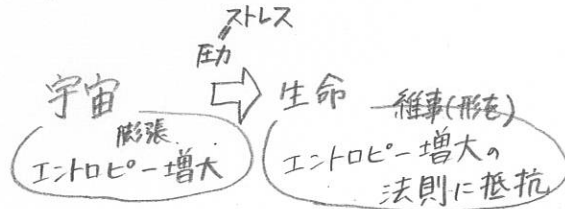 ストレス
圧力
宇宙
生命
維事(形を)
膨張
エントロピー増大
エントロピー増大の
法則に抵抗